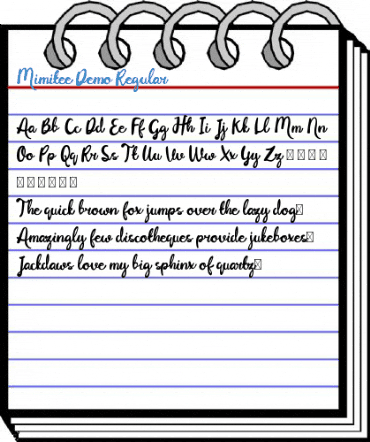 Mimitee Demo Regular
Aa Bb Cc Dd Ee Ff Gg Hh Ii Jj Kk Ll Mm Nn
Oo Pp Qq Rr Ss Tt Uu Vv Ww Xx Yy Zz □ □ □ □
□ □ □ □ □ □
The quick brown fox jumps over the lazy dog□
Amazingly few discotheques provide jukeboxes□
Jackdaws love my big sphinx of quartz□